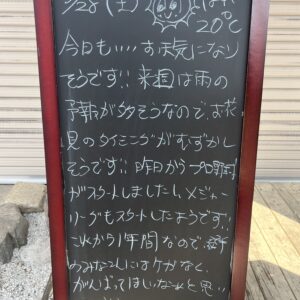 3/28(土)
20℃
今日もいい天気になり
そうです!! 来週は雨の
予報が多そうなので、お花
見のタイミングがむずかし
そうです!! 昨日からプロ野球
がスタートしましたし、メジャー
リーグもスタートしたようです!!
これから1年間なので、選手
のみなさんにはケガなく、
がんばってほしいなぁと思い